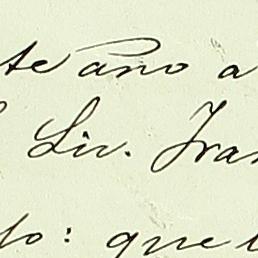 te ano a
Liv. Fran
to: que